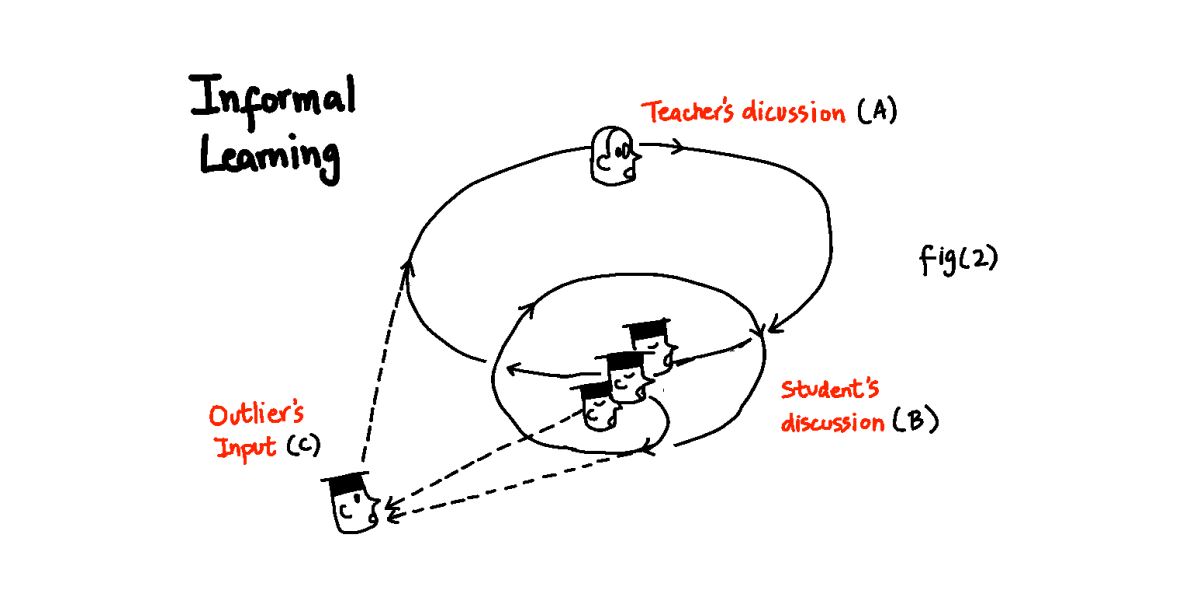 Informal
Learning
Teacher's dicussion (A)
fig(2)
Student's
discussion (B)
Outlier's
Input (C)